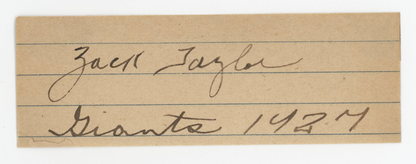 Zack Taylor
Giants 1927